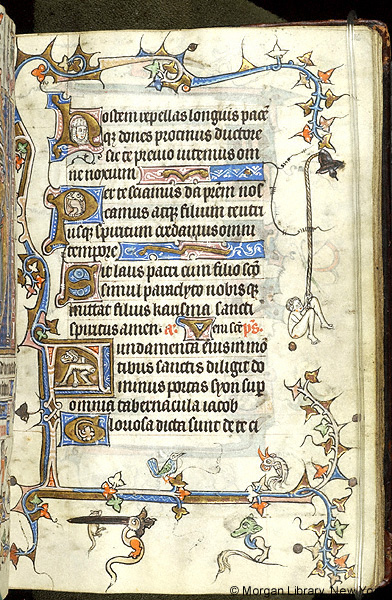 Hostem repellas longius pacem
q; dones protinus ductore
sic te previo vitemus om
ne noxium
Per te sciamus da prem nos
camus atq; filium te utri
usq; spiritum credamus omni
tempore
Sit laus patri cum filio sco
simul paraclyto nobisq;
mittat filius karisma sancti
spiritus amen. a. Veni sce ps.
Fundamenta eius in mo
tibus sanctis diligit do
minus portas syon sup
omnia tabernacula iacob
Gloriosa dicta sunt de te ci
© Morgan Library, New York